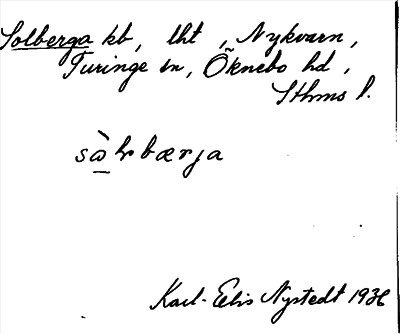 Solberga kb, lht, Nykvarn,
Turinge sn, Öknebo hd,
Sthms l.
sὰlrbærja
Karl-Eelis Nystedt 1936